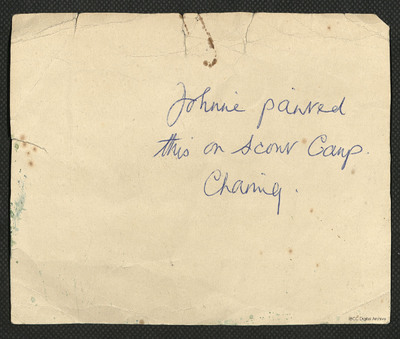 Johnie painted
this on Scout Camp.
Charing.
©CC Digital Archive